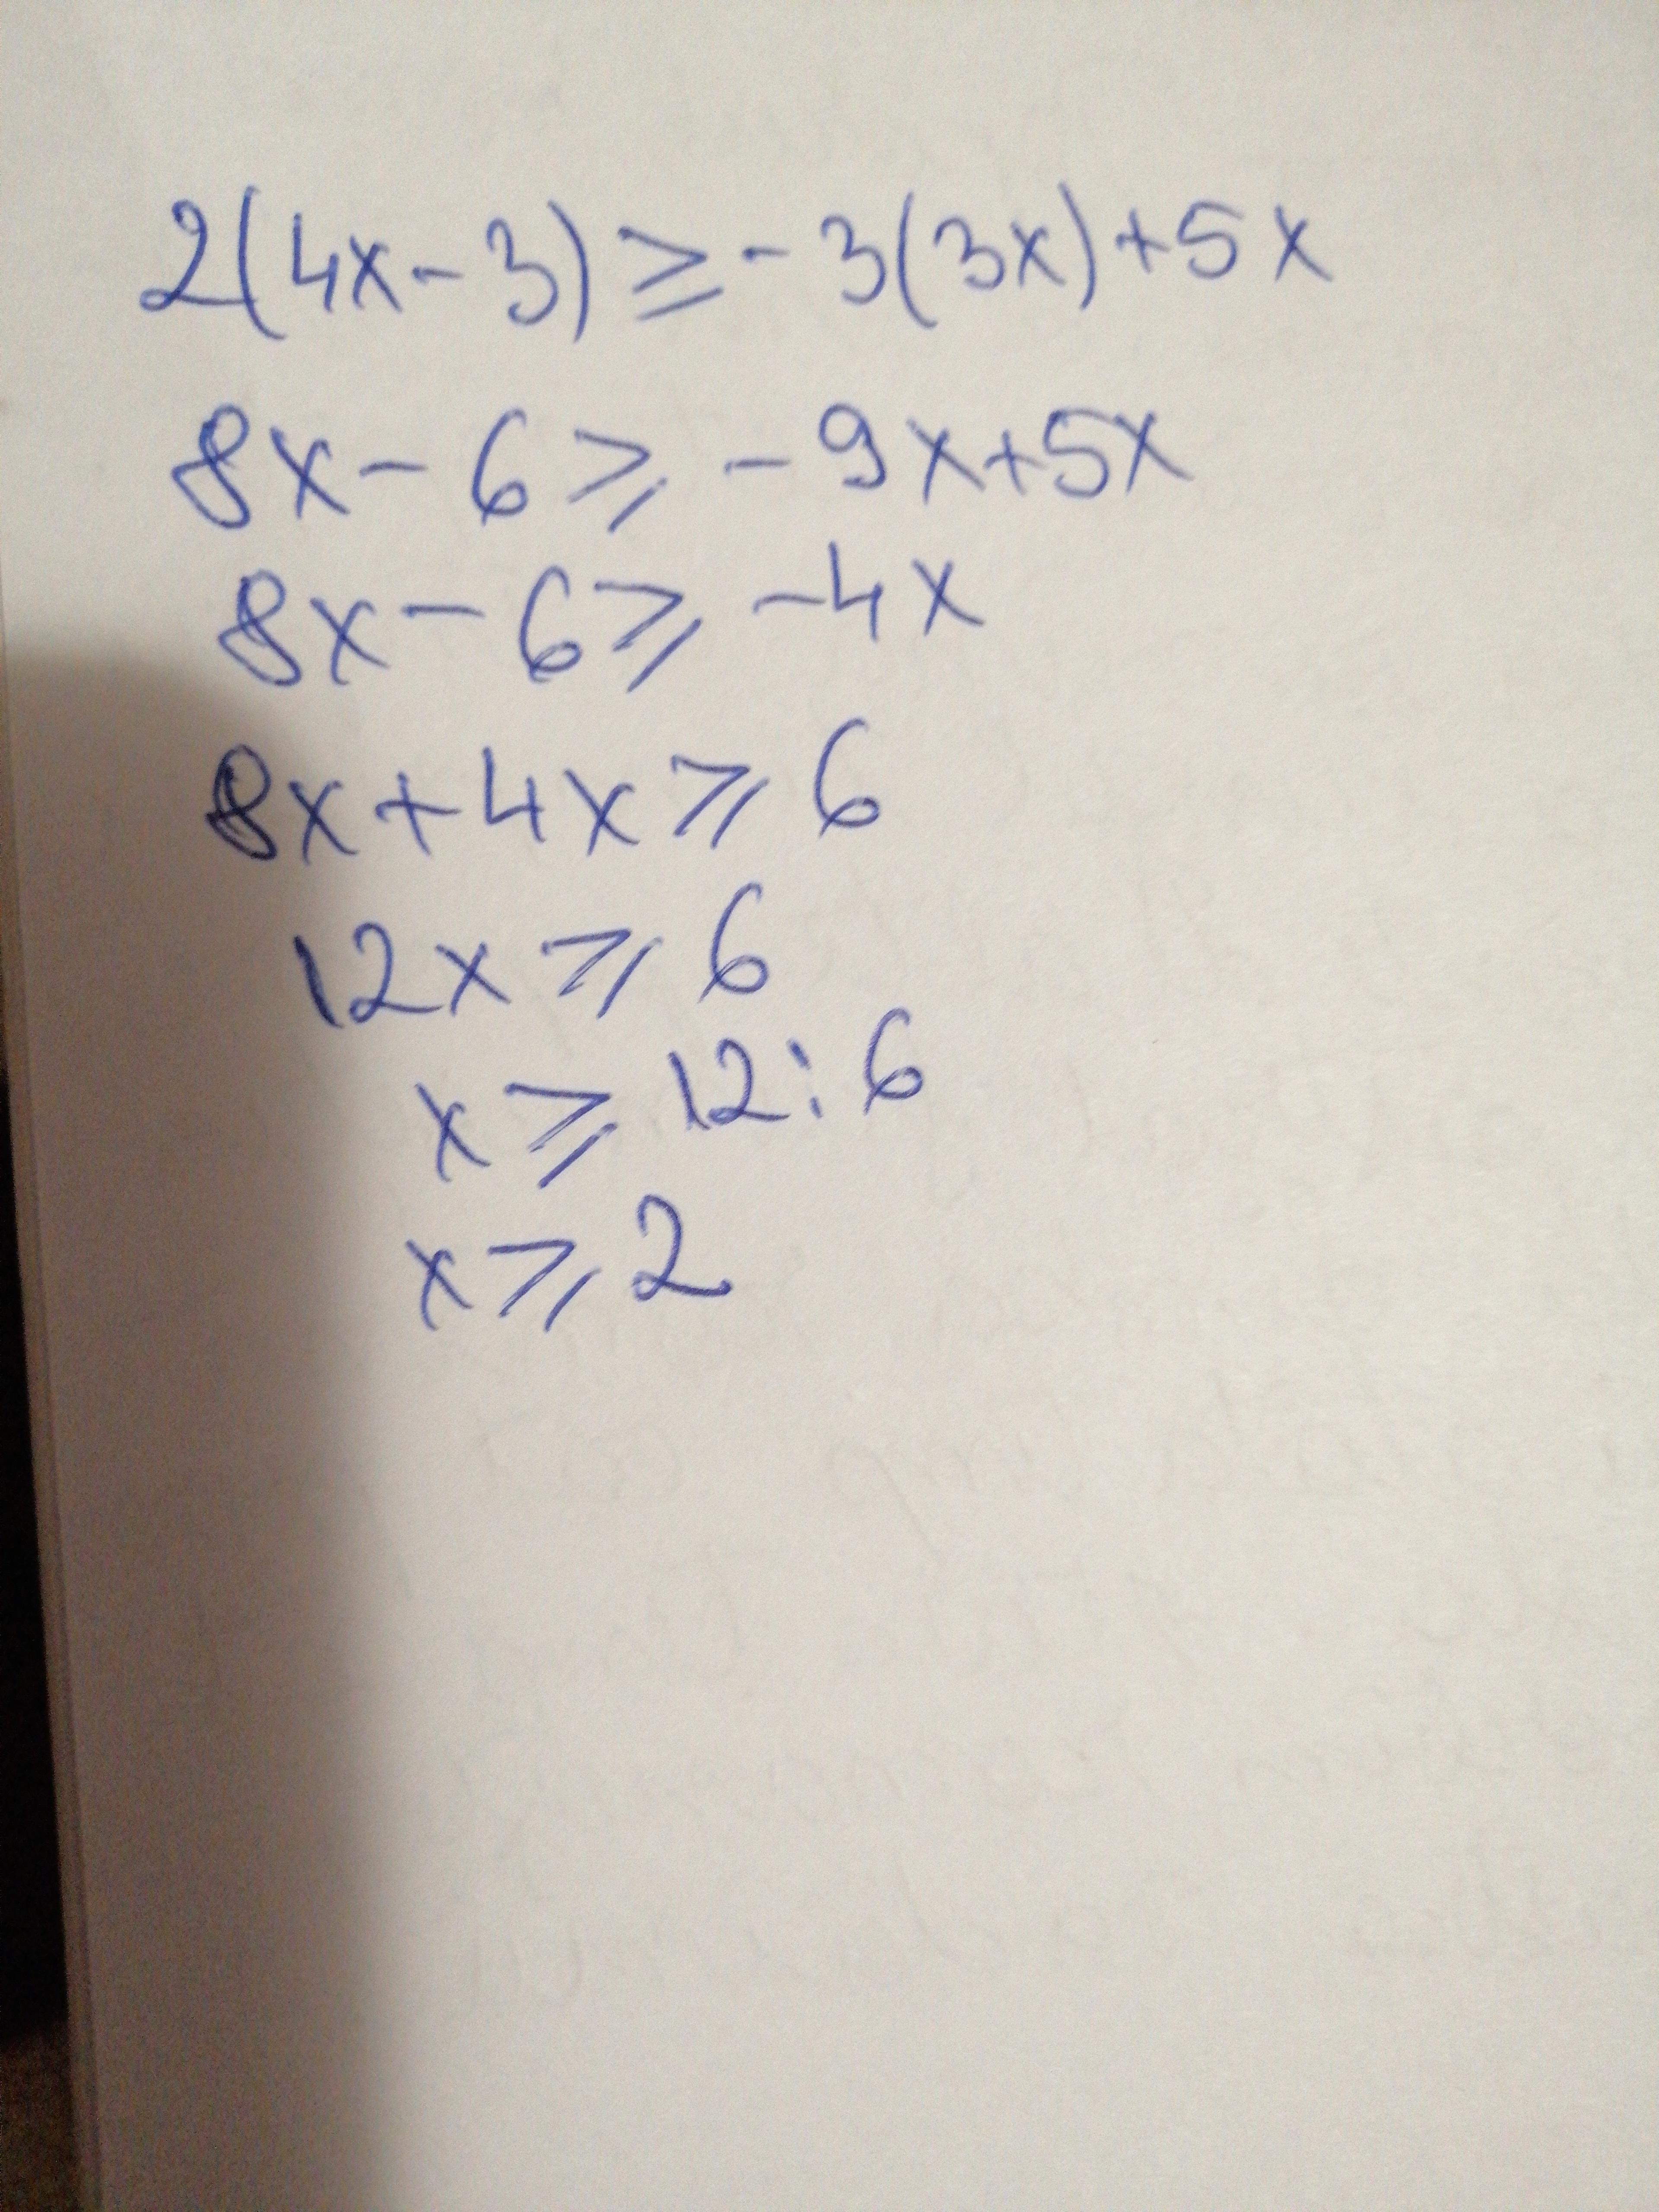 2(4x-3)≥-3(3x)+5x
8x-6≥-9x+5x
8x-6≥-4x
8x+4x≥6
12x≥6
x≥12:6
x≥2